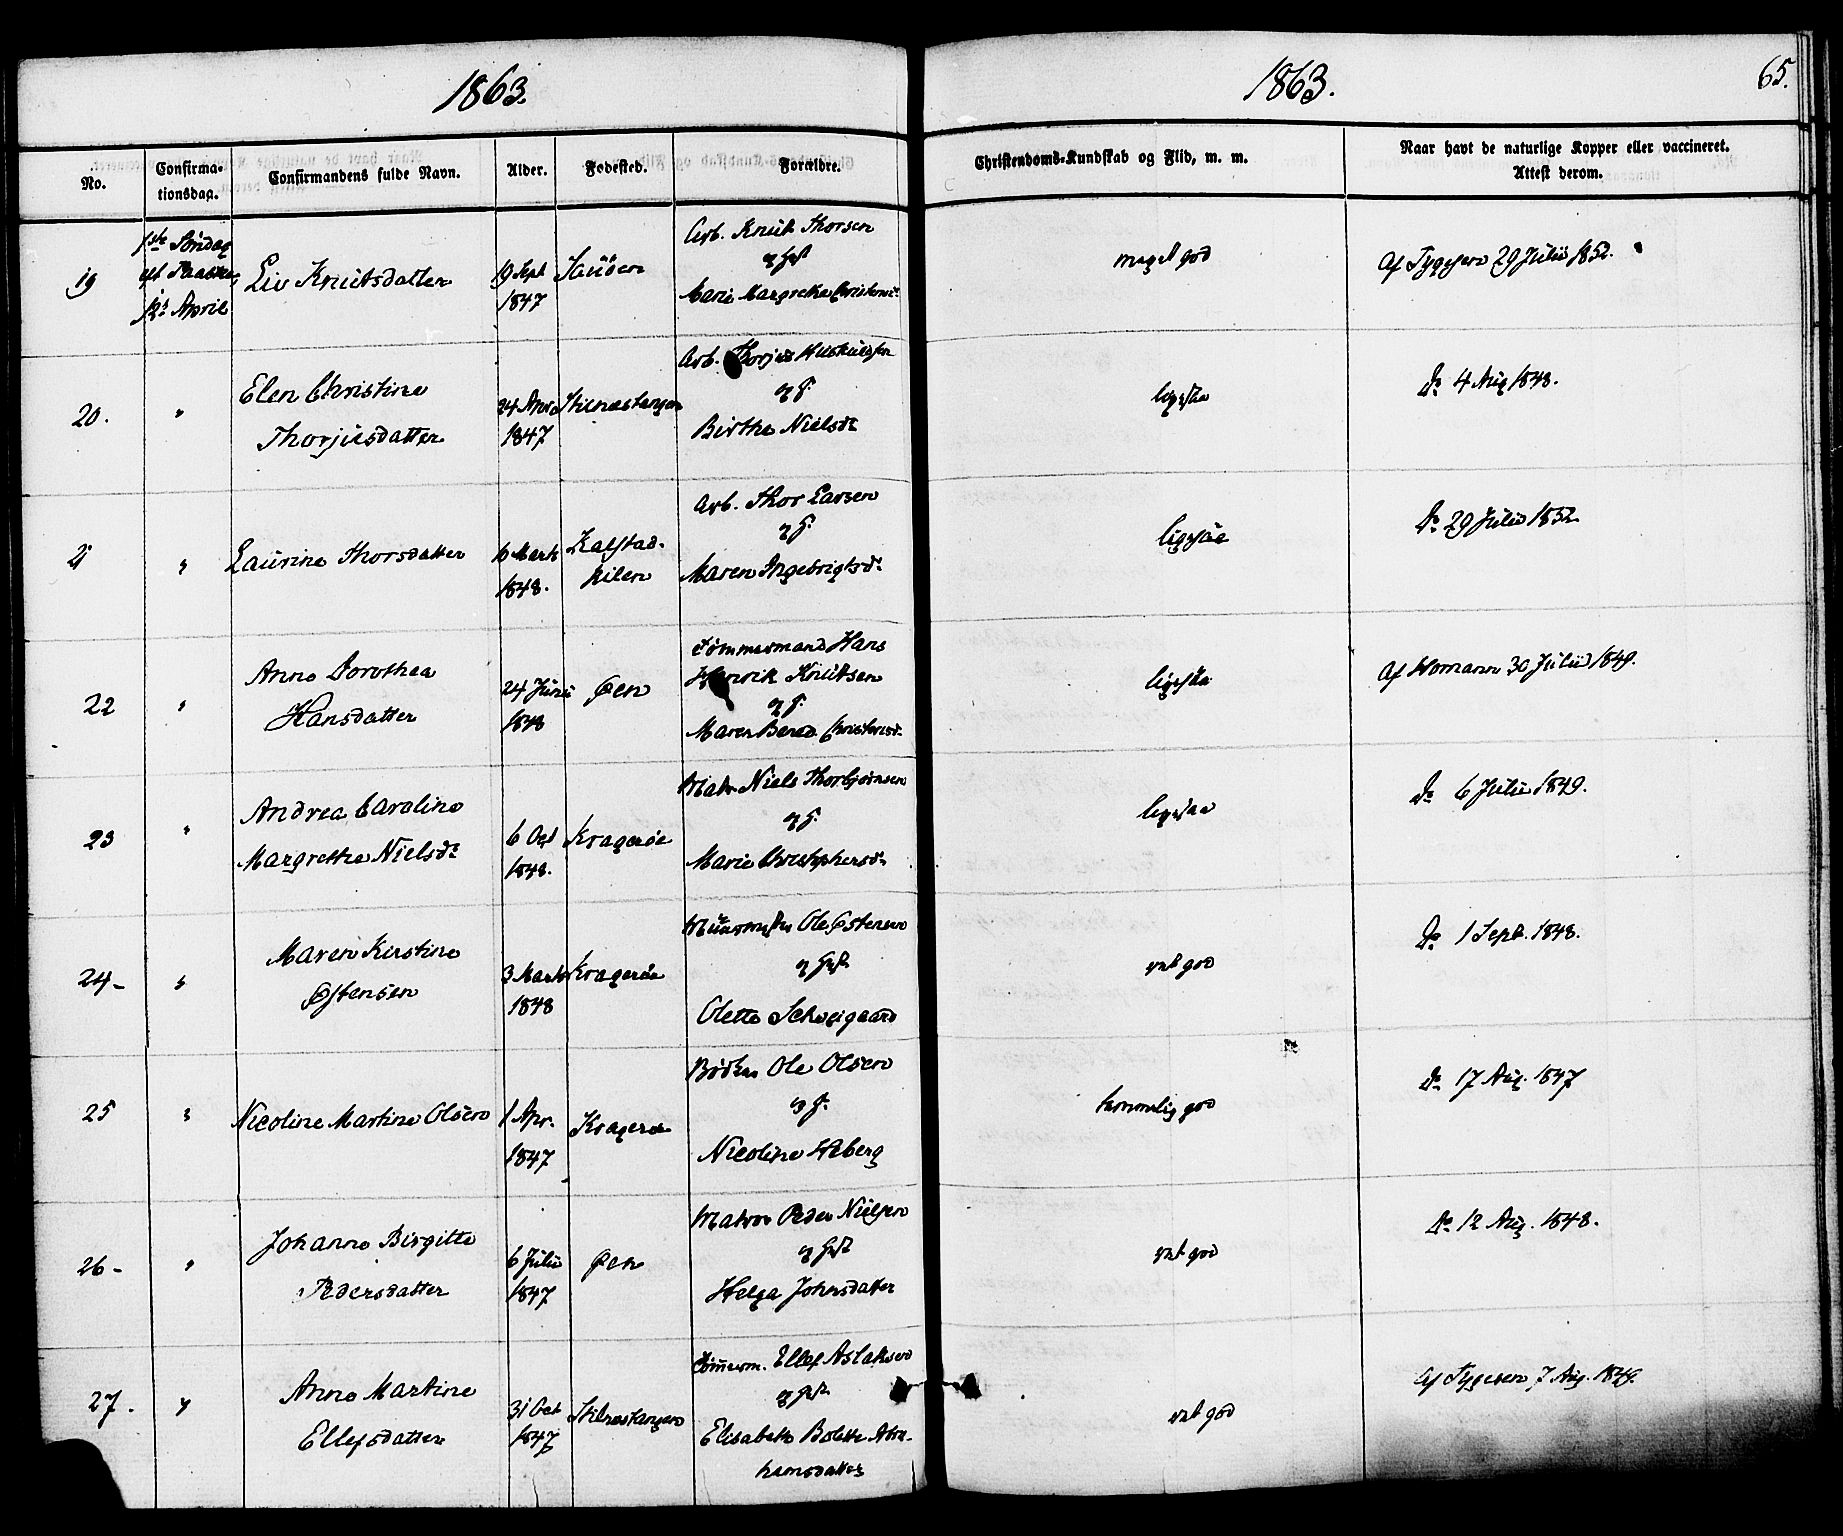 1863.
1863.
65.
No.
Confirma-
tionsdag.
Confirmandens fulde Navn.
Alder.
Fødested.
Forældre.
Christendoms-Kundskab og Flid, m. m.
Naar havt de naturlige Kopper eller vaccineret.
Attest derom.
19
1ste Søndag
eft Paaske,
12 April
Liv Knutsdatter
19 Sept
1847
Arb. Knut Thorsen
Marie Margrethe
meget god
Af Tygesen 29 Julii 1852.
20.
"
Elen Christine
Thorjusdatter
24 Apr
1847
Stilnestangen
Arb. Thorjus
og H.
Birthe Nielsd.
ligesaa
Do 4 Aug 1848.
21
"
Laurine Thorsdatter
6 Marts
1848.
Kalstad-
kilen
Arb. Thor Larsen
og H.
Maren Ingebrigtsd.
ligesaa
Do 29 Julii 1852
22
"
Anne Dorothea
Hansdatter
24 Juni
1848
Øen
Tømmermand Hans
Henrik Knutsen
og H.
Maren
ligesaa
Af Homann 30 Julii 1849.
23
"
Andrea Caroline
Margrethe Nielsd.
6 Oct
1848.
Kragerøe
Matr. Niels Thorbjørnsen
og H.
Marie Christophersd.
ligesaa
Do 6 Julii 1849.
24-
"
Maren Kirstine
Østensen
3 Marts
1848
Kragerøe
Ole Østensen
Olette Schweigaard
vel god
Do 1 Sept. 1848.
25
"
Nicoline Martine Olsen
1 Apr.
1847
Kragerøe
Bødker Ole Olsen
og H.
Nicoline
temmelig god
Do 17 Aug. 1847
26-
"
Johanne Birgitte
Pedersdatter
6 Julii
1847
Øen
Matros Peder Nielsen
Helga Johnsdatter
vel god
Do 12 Aug. 1848.
27.
"
Anne Martine
Ellefsdatter
31 Oct
1847
Stilnestangen
Tømmerm. Ellef Aslaksen
Elisabeth Bolette Abra-
hamsdatter
vel god
Af Tygesen 7 Aug. 1849.